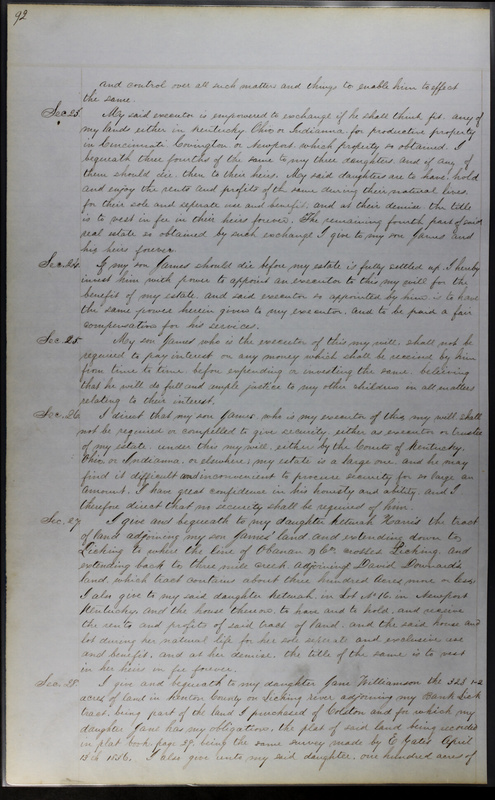 92
and control over all such matters and things to enable him to effect
the same.
Sec. 23. My said executor is empowered to exchange if he shall think fit, any of
my lands either in Kentucky Ohio or Indianna, for productive property
in Cincinnati Covington or Newport which property so obtained, I
bequeath three fourths of the same to my three daughters, and if any of
them should die, then to their heirs. My said daughters are to have, hold
and enjoy the rents and profits of the same during their natural lives,
for their sole and seperate use and benefit, and at their demise the title
is to vest in fee in their heirs forever. The remaining fourth part of said
real estate so obtained by such exchange I give to my son James and
his heirs forever
Sec. 24. If my son James should die before my estate is fully settled up I hereby
invest him with power to appoint an executor to this my will for the
benefit of my estate and said executor so appointed by him is to have
the same power herein given to my executor, and to be paid a fair
compensation for his services.
Sec. 25 My son James who is the executor of this my will, shall not be
required to pay interest on any money which shall be received by him
from time to time before expending or investing the same, believing
that he will do full and ample justice to my other children in all matters
relating to their interest.
Sec. 26. I direct that my son James, who is my executor of this my will shall
not be required or compelled to give security, either as executor or trustee
of my estate, under this my will, either by the Courts of Kentucky,
Ohio or Indianna, or elsewhere; my estate is a large one, and he may
find it difficult and inconvenient to procure security for so large an
amount, I have great confidence in his honesty and ability, and I
therefore direct that no security shall be required of him.
Sec. 27 I give and bequeath to my daughter Keturah Harris the tract
of land adjoining my son James' land and extending down to
Licking to where the line of & Co. crosses Licking, and
extending back to three mile creek adjoining David Downard's
land, which tract contains about three hundred acres more or less.
I also give to my said daughter Keturah, in Lot No. 16, in Newport
Kentucky and the house thereon, to have and to hold, and receive
the rents and profits of said tract of land, and the said house and
lot during her natural life for her sole seperate and exclusive use
and benefit, and at her demise, the title of the same is to vest
in her heirs in fee forever.
Sec. 28. I give and bequeath to my daughter Jane Williamson the 325 1-2
acres of land in Kenton County on Licking river adjoining my Bank Lick
tract, being part of the land I purchased of Colston and for which my
daughter Jane has my obligation, the plat of said land being recorded
in plat book page 39, being the same survey made by C. Yates April
13th 1836. I also give unto my said daughter, one hundred acres of